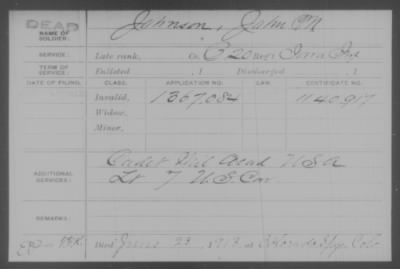 DEAD
NAME OF SOLDIER: Johnson, John M
SERVICE: Late rank, Co. C 20 Reg't Iowa Inf
TERM OF SERVICE: Enlisted , 1 Discharged , 1
DATE OF FILING. CLASS. APPLICATION NO. LAW. CERTIFICATE NO.
Invalid, 1367,084 1140,917
Widow,
Minor,
ADDITIONAL SERVICES: Cadet Mil Acad U S A
Lt 7 U.S. Cav.
REMARKS:
Died June 23, 1913, at Colorado Spgs Colo